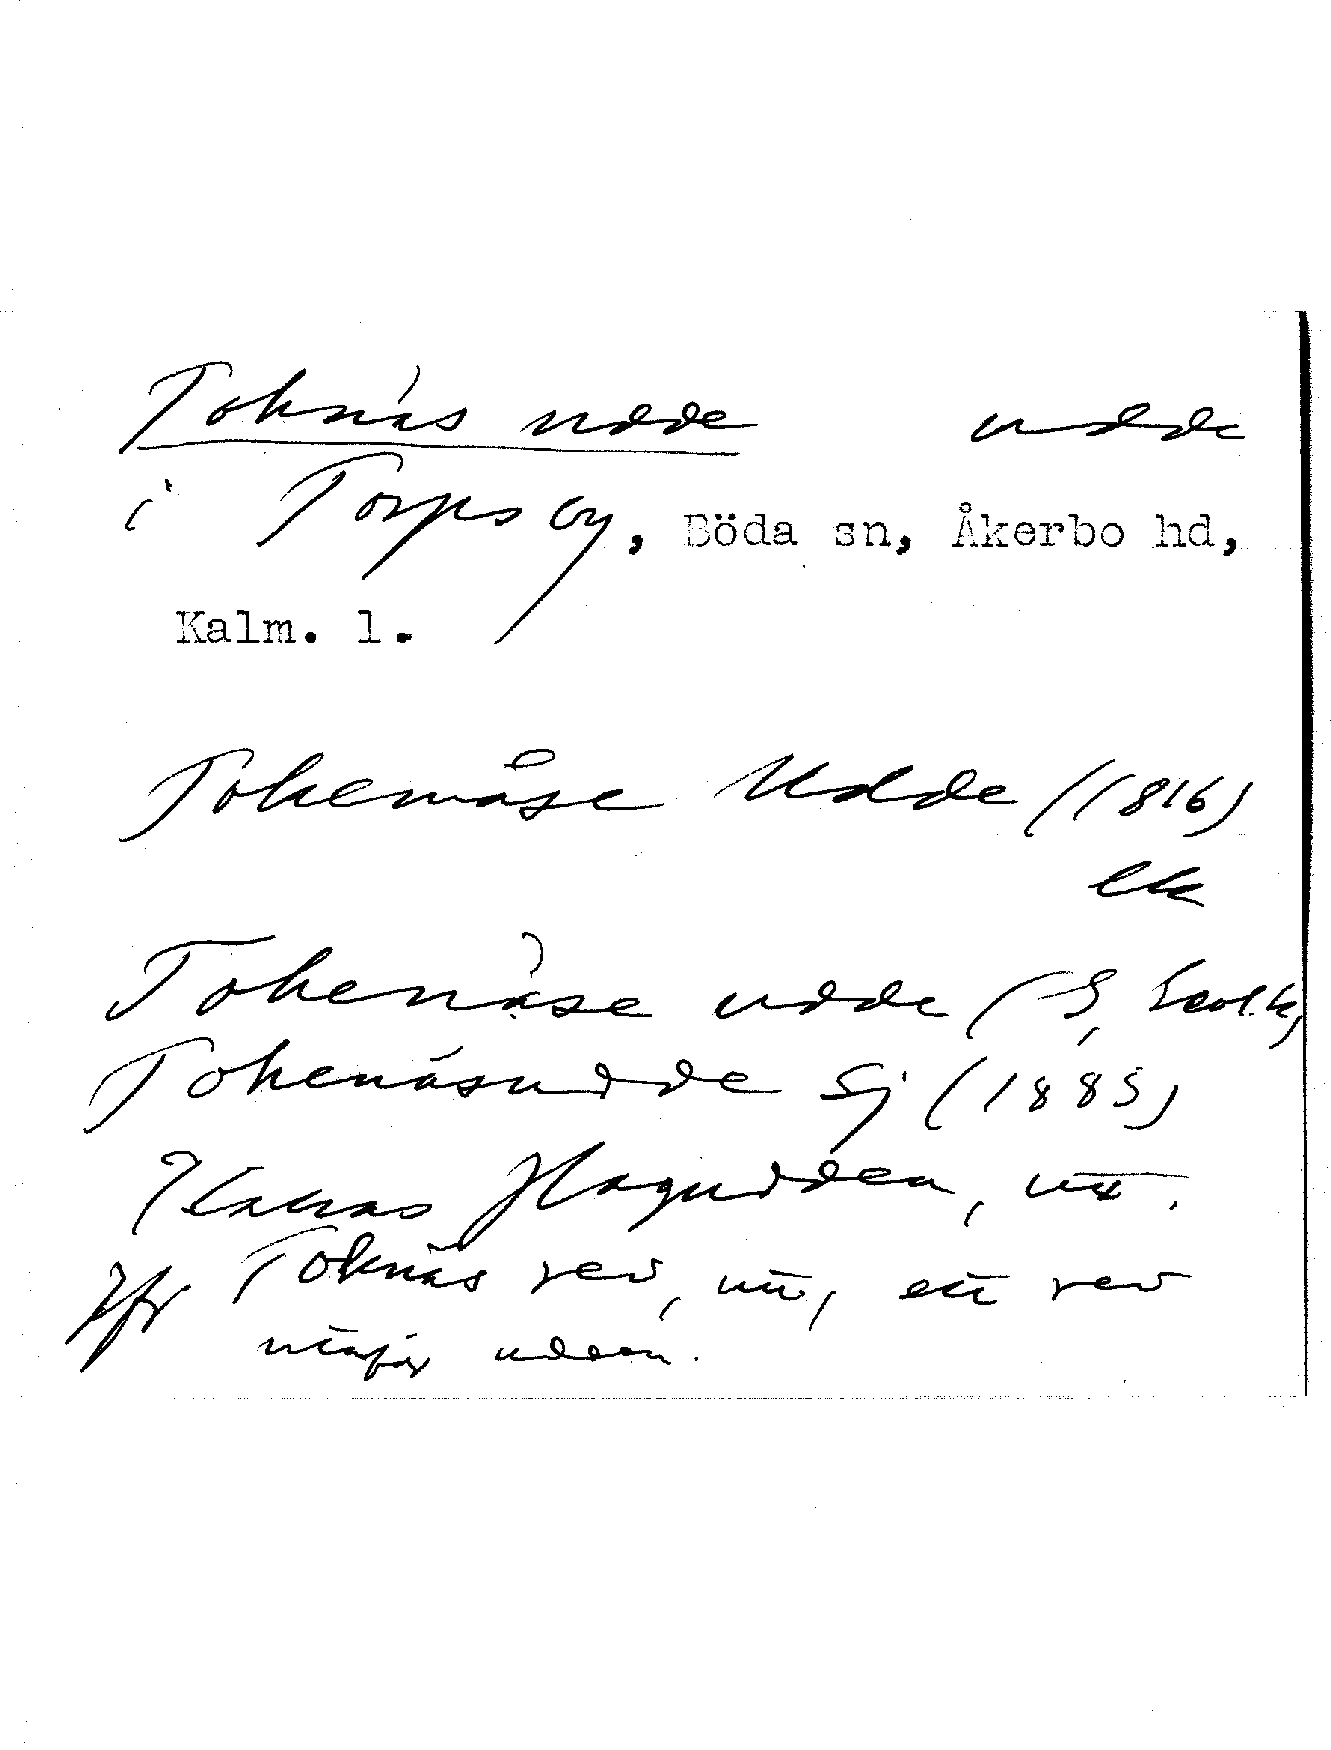 Toknäs udde udde
i Torps by, Böda sn, Åkerbo hd,
Kalm. l.
Tokenåse Udde (1816)
ek
Tokenäse udde (G
Tokenäsudde Sj (1885)
Kallas Hagudden,
Jfr Toknäs rev, ett rev
utanför udden.